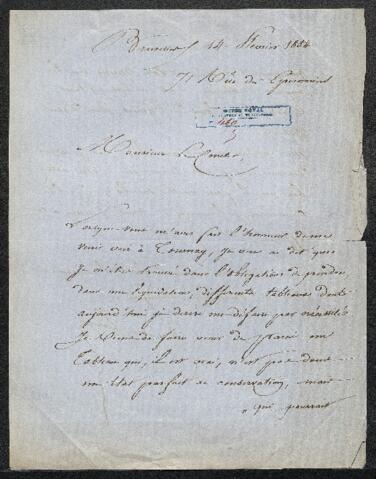 Bruxelles 14 Février 1854
71 Rue de
MUSÉE ROYAL
Monsieur le Comte,
Lorsque vous m'avez fait l'honneur de me
venir voir à Tournay, je vous ai dit que
je m'étais trouvé dans l'obligation de prendre
dans une liquidation, différents tableaux dont
aujourd'hui je désire me défaire par nécessité
Je viens de faire venir de un
Tableau qui, il est vrai, n'est pas dans
un état parfait de conservation, mais
qui pourrait